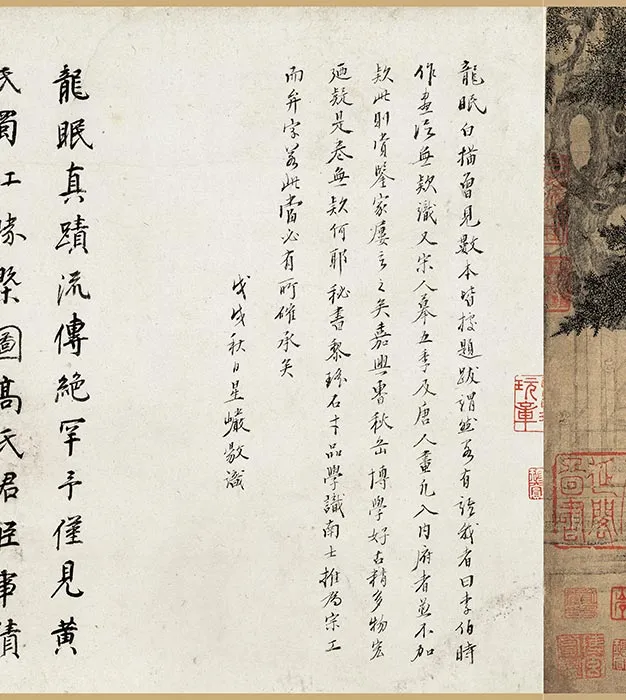 龍眠白描曾見數本皆據題跋謂然若有詒我者曰李伯時
作畫從無欵識又宋人摹五季及唐人畫凡入內府者並不加
欵此則賞鑒家屢言之矣嘉興曹秋岳博學好古精多物宏
廼疑是卷無欵何耶秘書黎瑤石才品學識南士推為宗工
而弁字若此當必有所確承矣
戊戌秋日星巖敬識
龍眠真蹟流傳絕罕予僅見黃
氏蜀江勝槩圖高氏君臣事蹟